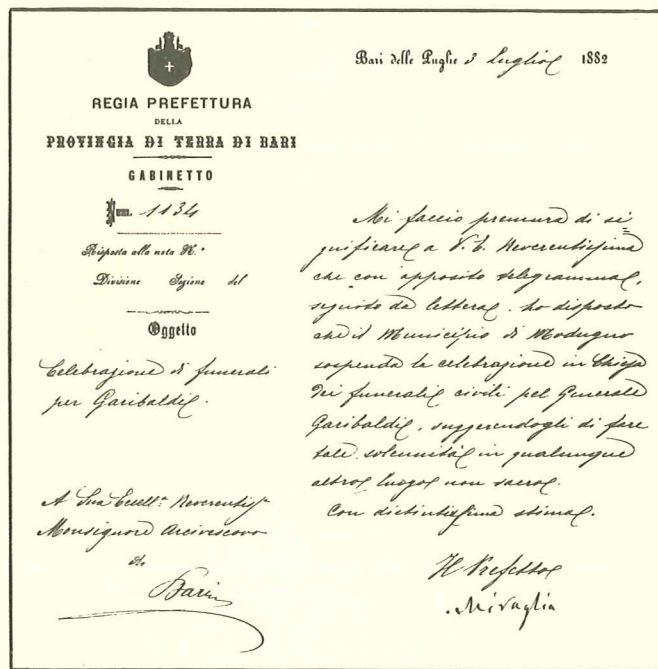 REGIA PREFETTURA
DELLA
PROVINCIA DI TERRA DI BARI
GABINETTO
Num. 1134
Risposta alla nota N.º
Divisione Sezione del
Oggetto
Celebrazione di funerali
per Garibaldi.
A Sua Eccell.ª Reverentiss.ª
Monsignore Arcivescovo
di
Bari
Bari delle Puglie 3 Luglio 1882
Mi faccio premura di si
gnificare a V. E. Reverentissima
che con apposito telegramma,
seguito da lettera, ho disposto
che il Municipio di Modugno
sospenda la celebrazione in Chiesa
dei funerali civili pel Generale
Garibaldi, suggerendogli di fare
tale solennità in qualunque
altro luogo non sacro.
Con distintissima stima.
Il Prefetto
Miraglia